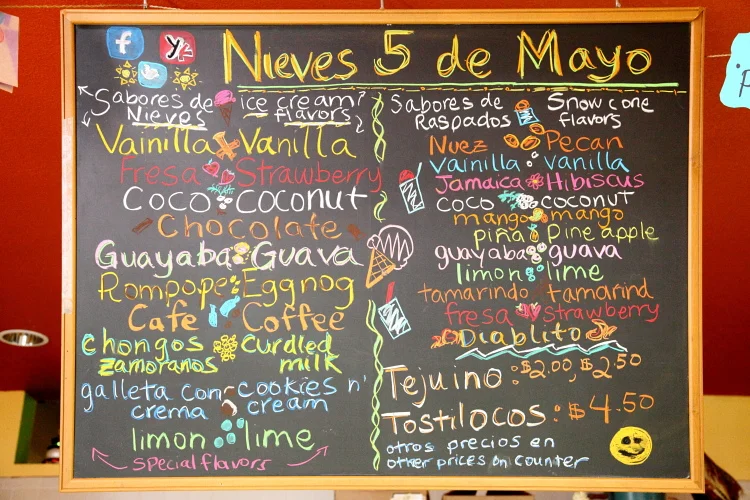 Nieves 5 de Mayo
Sabores de Nieves ice cream flavors
Vainilla Vanilla
Fresa Strawberry
Coco coconut
Chocolate
Guayaba Guava
Rompope Eggnog
Cafe Coffee
chongos zamoranos curdled milk
galleta con crema cookies n' cream
limon lime
special flavors
Sabores de Raspados Snow cone flavors
Nuez Pecan
Vainilla vanilla
Jamaica Hibiscus
coco coconut
mango mango
piña Pineapple
guayaba guava
limon lime
tamarindo tamarind
fresa strawberry
Diablito
Tejuino: $2.00, $2.50
Tostilocos: $4.50
otros precios en
other prices on counter